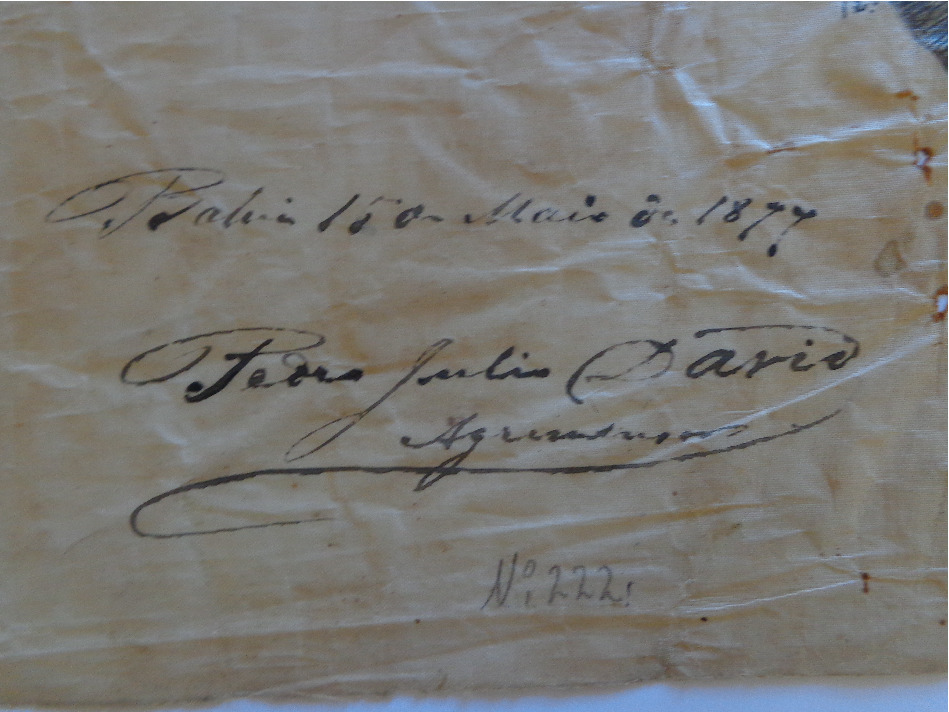 Bahia 15 de Maio de 1877
Pedro Julio David
Agrimensor
No. 222.